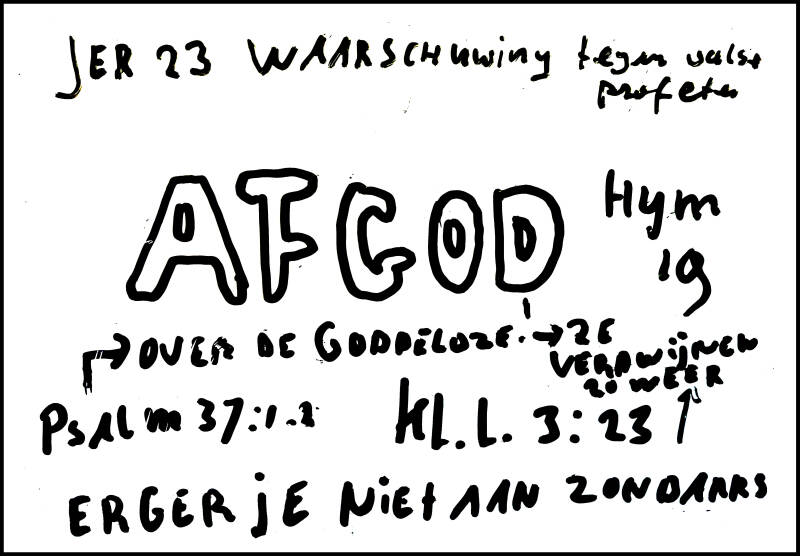 JER 23 WAARSCHUWING tegen valse
profeten
AFGOD
Hym
19
OVER DE GODDELOZE! → ZE
VERDWIJNEN
ZO WEER
Psalm 37:1.2
KL.L. 3:23
ERGER JE NIET AAN ZONDAARS